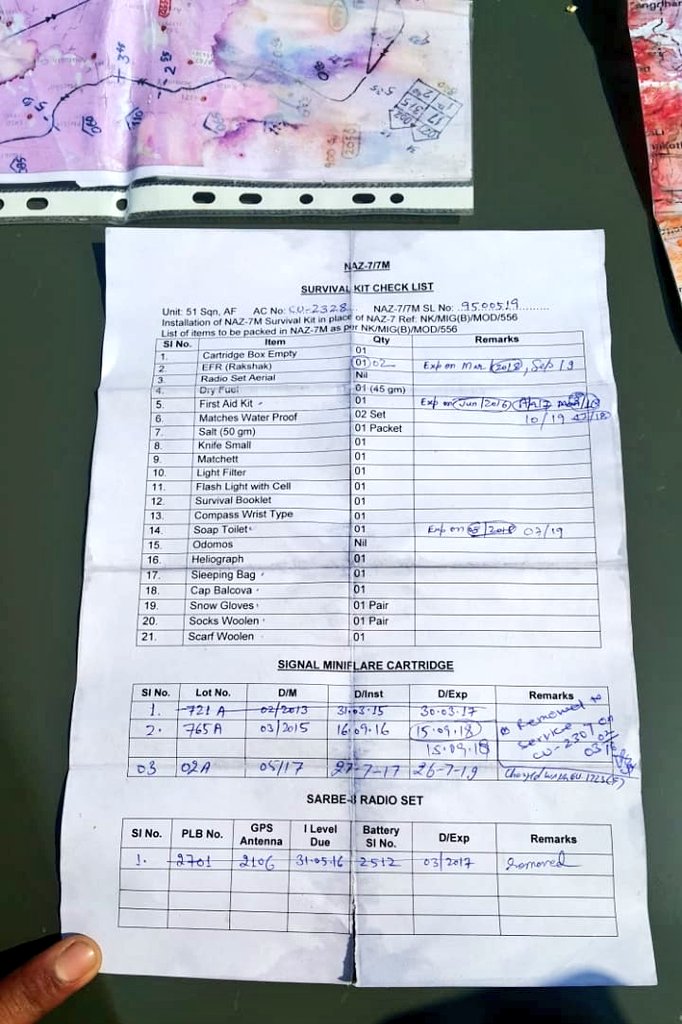 NAZ-7/7M
SURVIVAL KIT CHECK LIST
Unit: 51 Sqn, AF AC No: CU-2328 NAZ-7/7M SL No: 9500519
Installation of NAZ-7M Survival Kit in place of NAZ-7 Ref: NK/MIG(B)/MOD/556
List of items to be packed in NAZ-7M as per NK/MIG(B)/MOD/556
Sl No. Item Qty Remarks
1. Cartridge Box Empty 01
2. EFR (Rakshak) 01 02 Exp on Mar/2018, Sep/19
3. Radio Set Aerial Nil
4. Dry Fuel 01 (45 gm)
5. First Aid Kit 01 Exp on Jun/2016
6. Matches Water Proof 02 Set 10/19
7. Salt (50 gm) 01 Packet
8. Knife Small 01
9. Matchett 01
10. Light Filter 01
11. Flash Light with Cell 01
12. Survival Booklet 01
13. Compass Wrist Type 01
14. Soap Toilet 01 Exp on 07/19
15. Odomos Nil
16. Heliograph 01
17. Sleeping Bag 01
18. Cap Balcova 01
19. Snow Gloves 01 Pair
20. Socks Woolen 01 Pair
21. Scarf Woolen 01
SIGNAL MINIFLARE CARTRIDGE
Sl No. Lot No. D/M D/Inst D/Exp Remarks
1. 721 A 02/2013 31.03.15 30.03.17
2. 765A 03/2015 16.09.16 15.09.18 Removed to
15.09.18 Service CU-2307 on
03 02A 05/17 27-7-17 26-7-19
SARBE-8 RADIO SET
Sl No. PLB No. GPS Antenna I Level Due Battery Sl No. D/Exp Remarks
1. 2701 2106 31.05.16 2512 03/2017 Removed